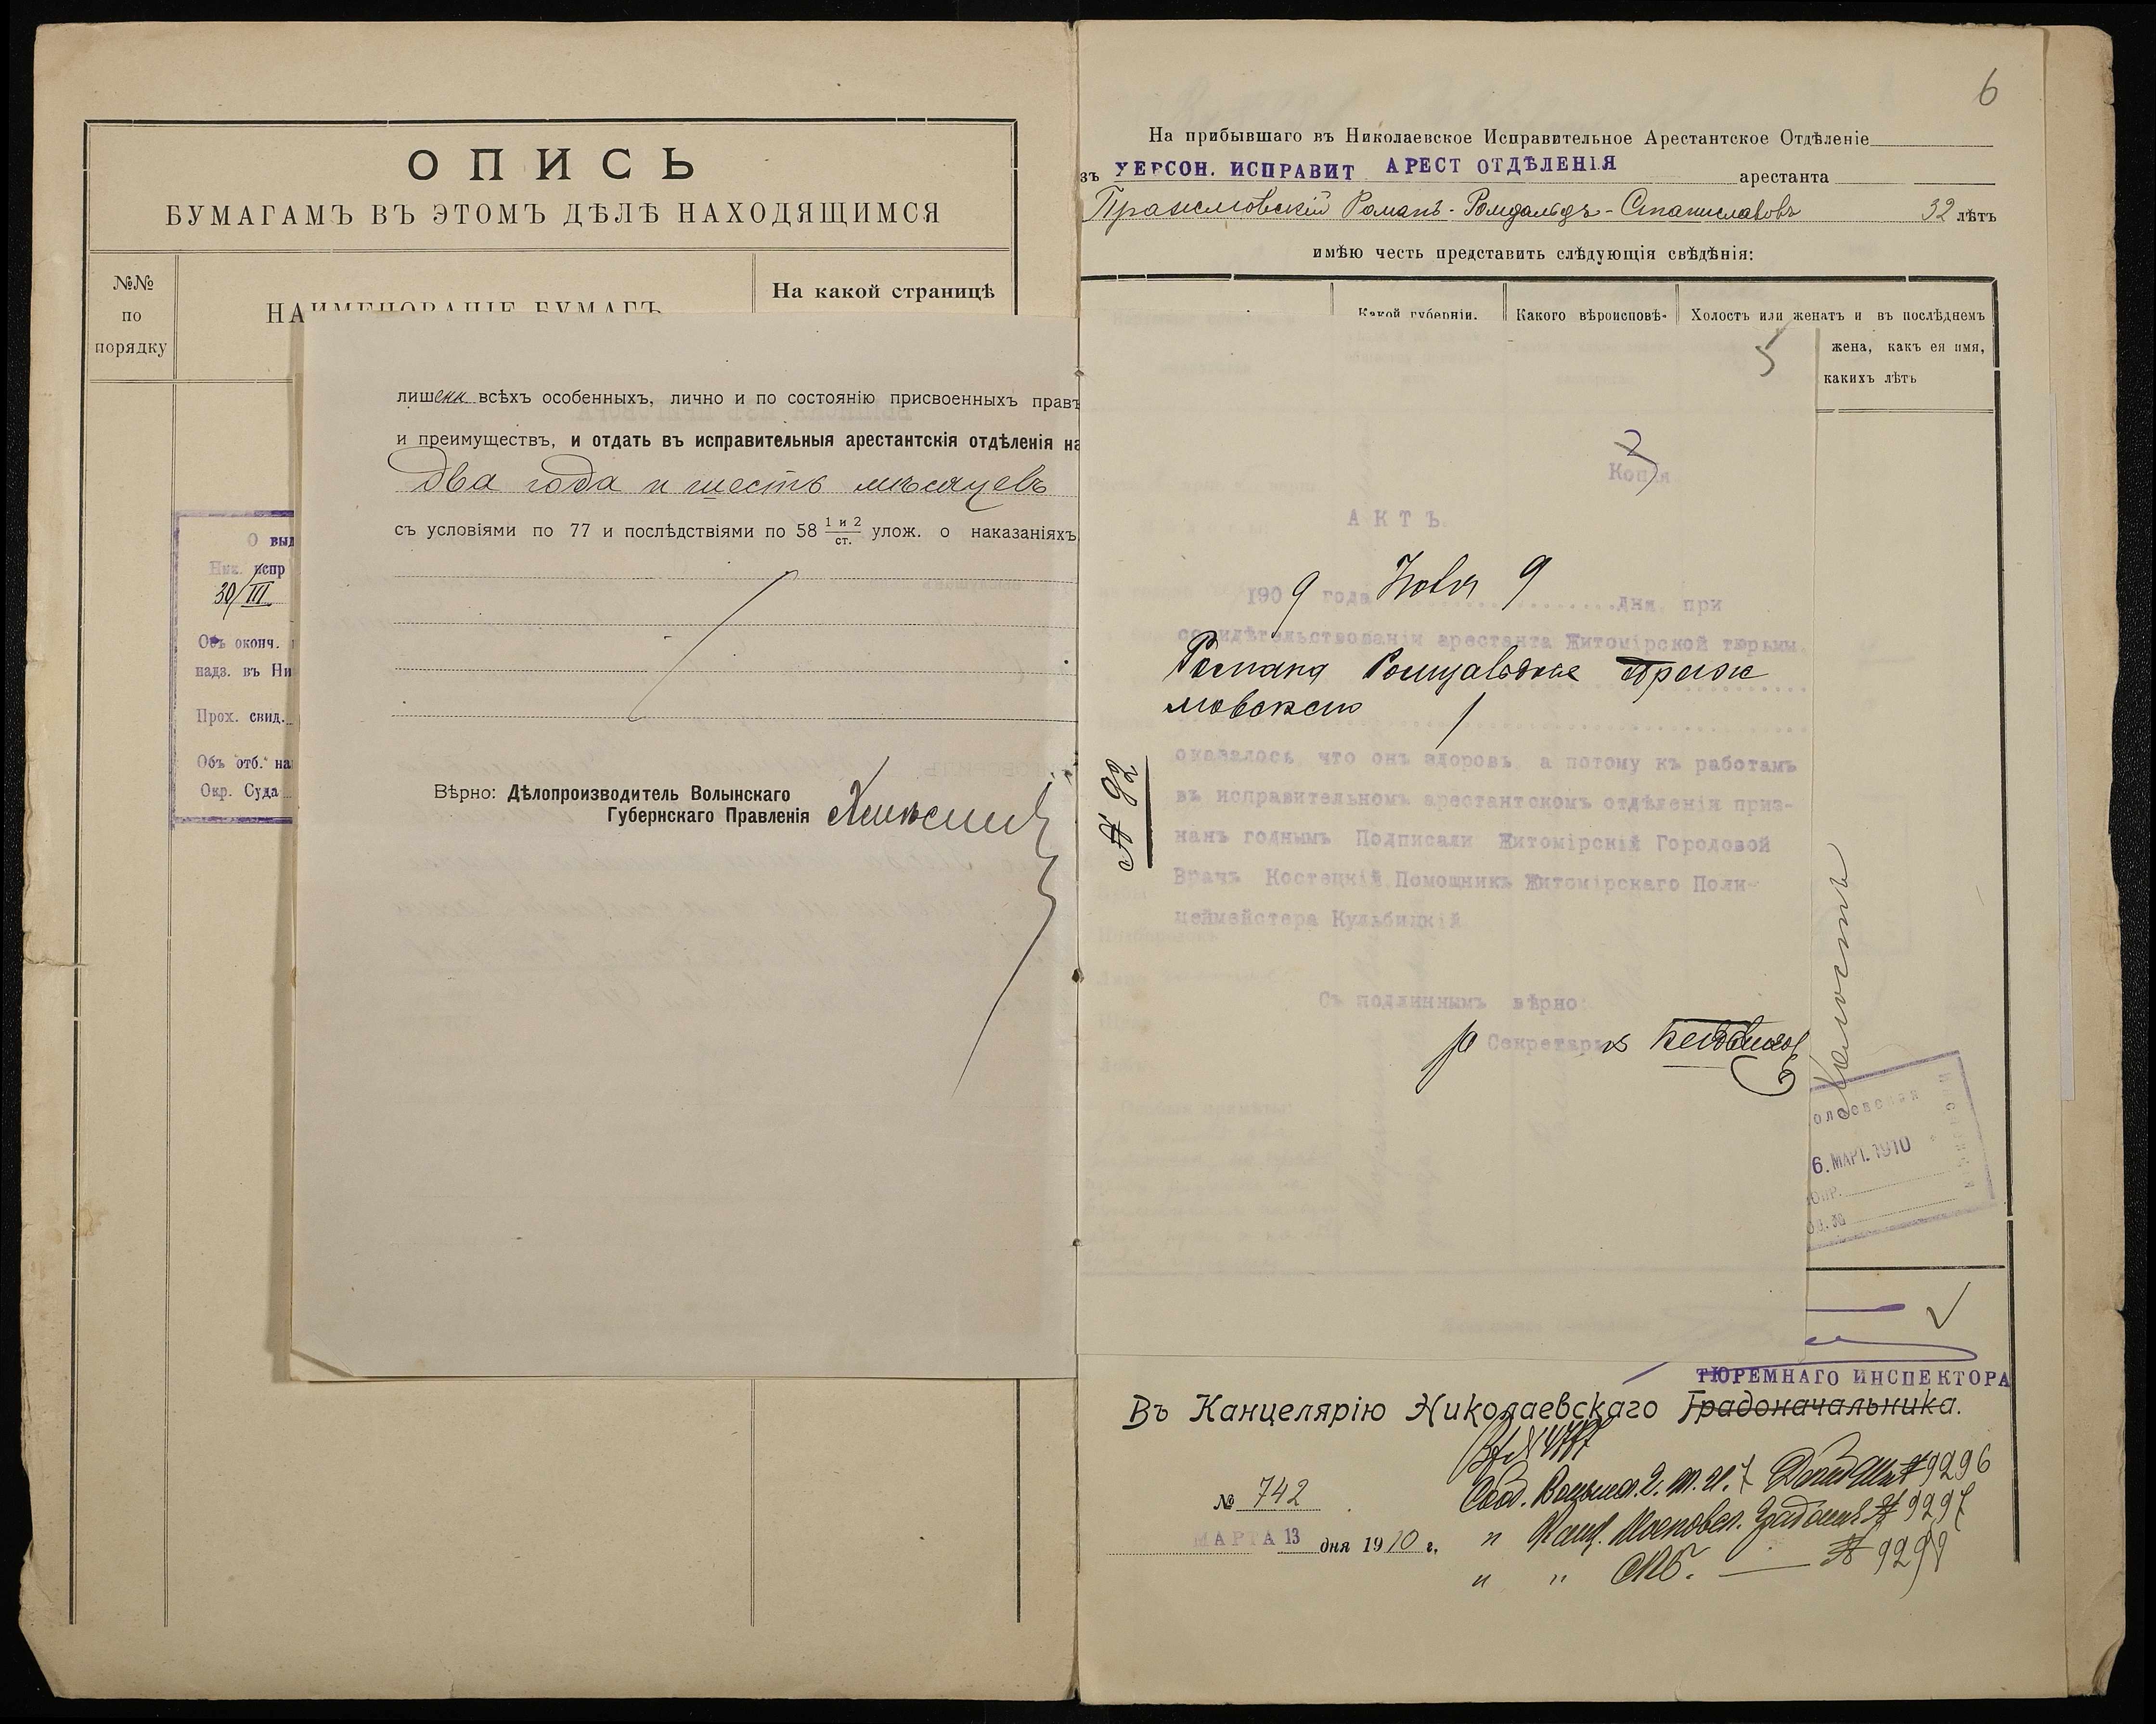 ОПИСЬ
БУМАГАМЪ ВЪ ЭТОМЪ ДѢЛѢ НАХОДЯЩИМСЯ
№№
по
порядку
НАИМЕНОВАНІЕ БУМАГЪ
На какой страницѣ
О выд
Ник. испр
30/III
Объ оконч.
надз. въ Ни
Прох. свид.
Объ отб. на
Окр. Суда
лишени всѣхъ особенныхъ, лично и по состоянію присвоенныхъ правъ
и преимуществъ, и отдать въ исправительныя арестантскія отдѣленія на
два года и шесть мѣсяцевъ
съ условіями по 77 и послѣдствіями по 58 1 и 2 ст. улож. о наказаніяхъ
Вѣрно: Дѣлопроизводитель Волынскаго
Губернскаго Правленія
6
На прибывшаго въ Николаевское Исправительное Арестантское Отдѣленіе
зъ ХЕРСОН. ИСПРАВИТ АРЕСТ ОТДѢЛЕНІЯ арестанта
Пражмовскій Романъ-Ромуальдъ-Станиславовъ 32 лѣтъ
имѣю честь представить слѣдующія свѣдѣнія:
Какой губерніи.
Какого вѣроисповѣ-
Холостъ или женатъ и въ послѣднемъ
жена, какъ ея имя,
какихъ лѣтъ
5
2
Копія
АКТЪ
1909 года Ноября 9 дня при
освидѣтельствованіи арестанта Житомірской тюрьмы
Романа Ромуальдова Праж
мовскаго
оказалось что онъ здоровъ а потому къ работамъ
въ исправительномъ арестантскомъ отдѣленія приз-
нанъ годнымъ Подписали Житомірскій Городовой
Врачъ Костецкій Помощникъ Житомірскаго Поли-
цеймейстера Кульбицкій
№ 92
Съ подлиннымъ вѣрно:
Секретарь
Холостъ
олаевская
6. МАРТ. 1910
ТЮРЕМНАГО ИНСПЕКТОРА
Въ Канцелярію Николаевскаго Градоначальника.
№ 742
МАРТА 13 дня 1910 г.
№ 9296
№ 9297
" " СПБ. — № 9298